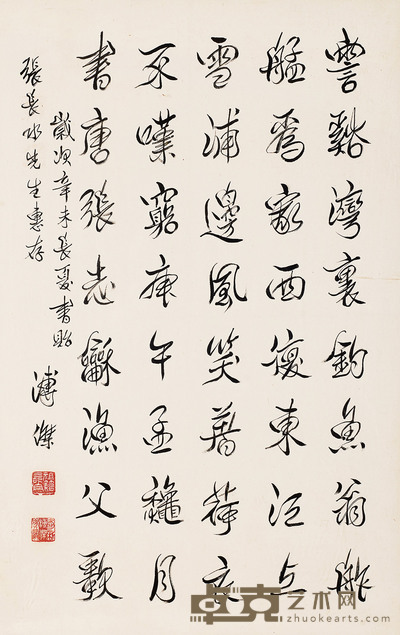 霅谿灣裏釣魚翁舴
艋為家西復東江上
雪浦邊風笑著荷衣
不嘆窮庚午孟龝月
書唐張志龢漁父歌
歲次辛未長夏書貽
張長水先生惠存
溥傑
卓克艺术网
zhuokearts.com